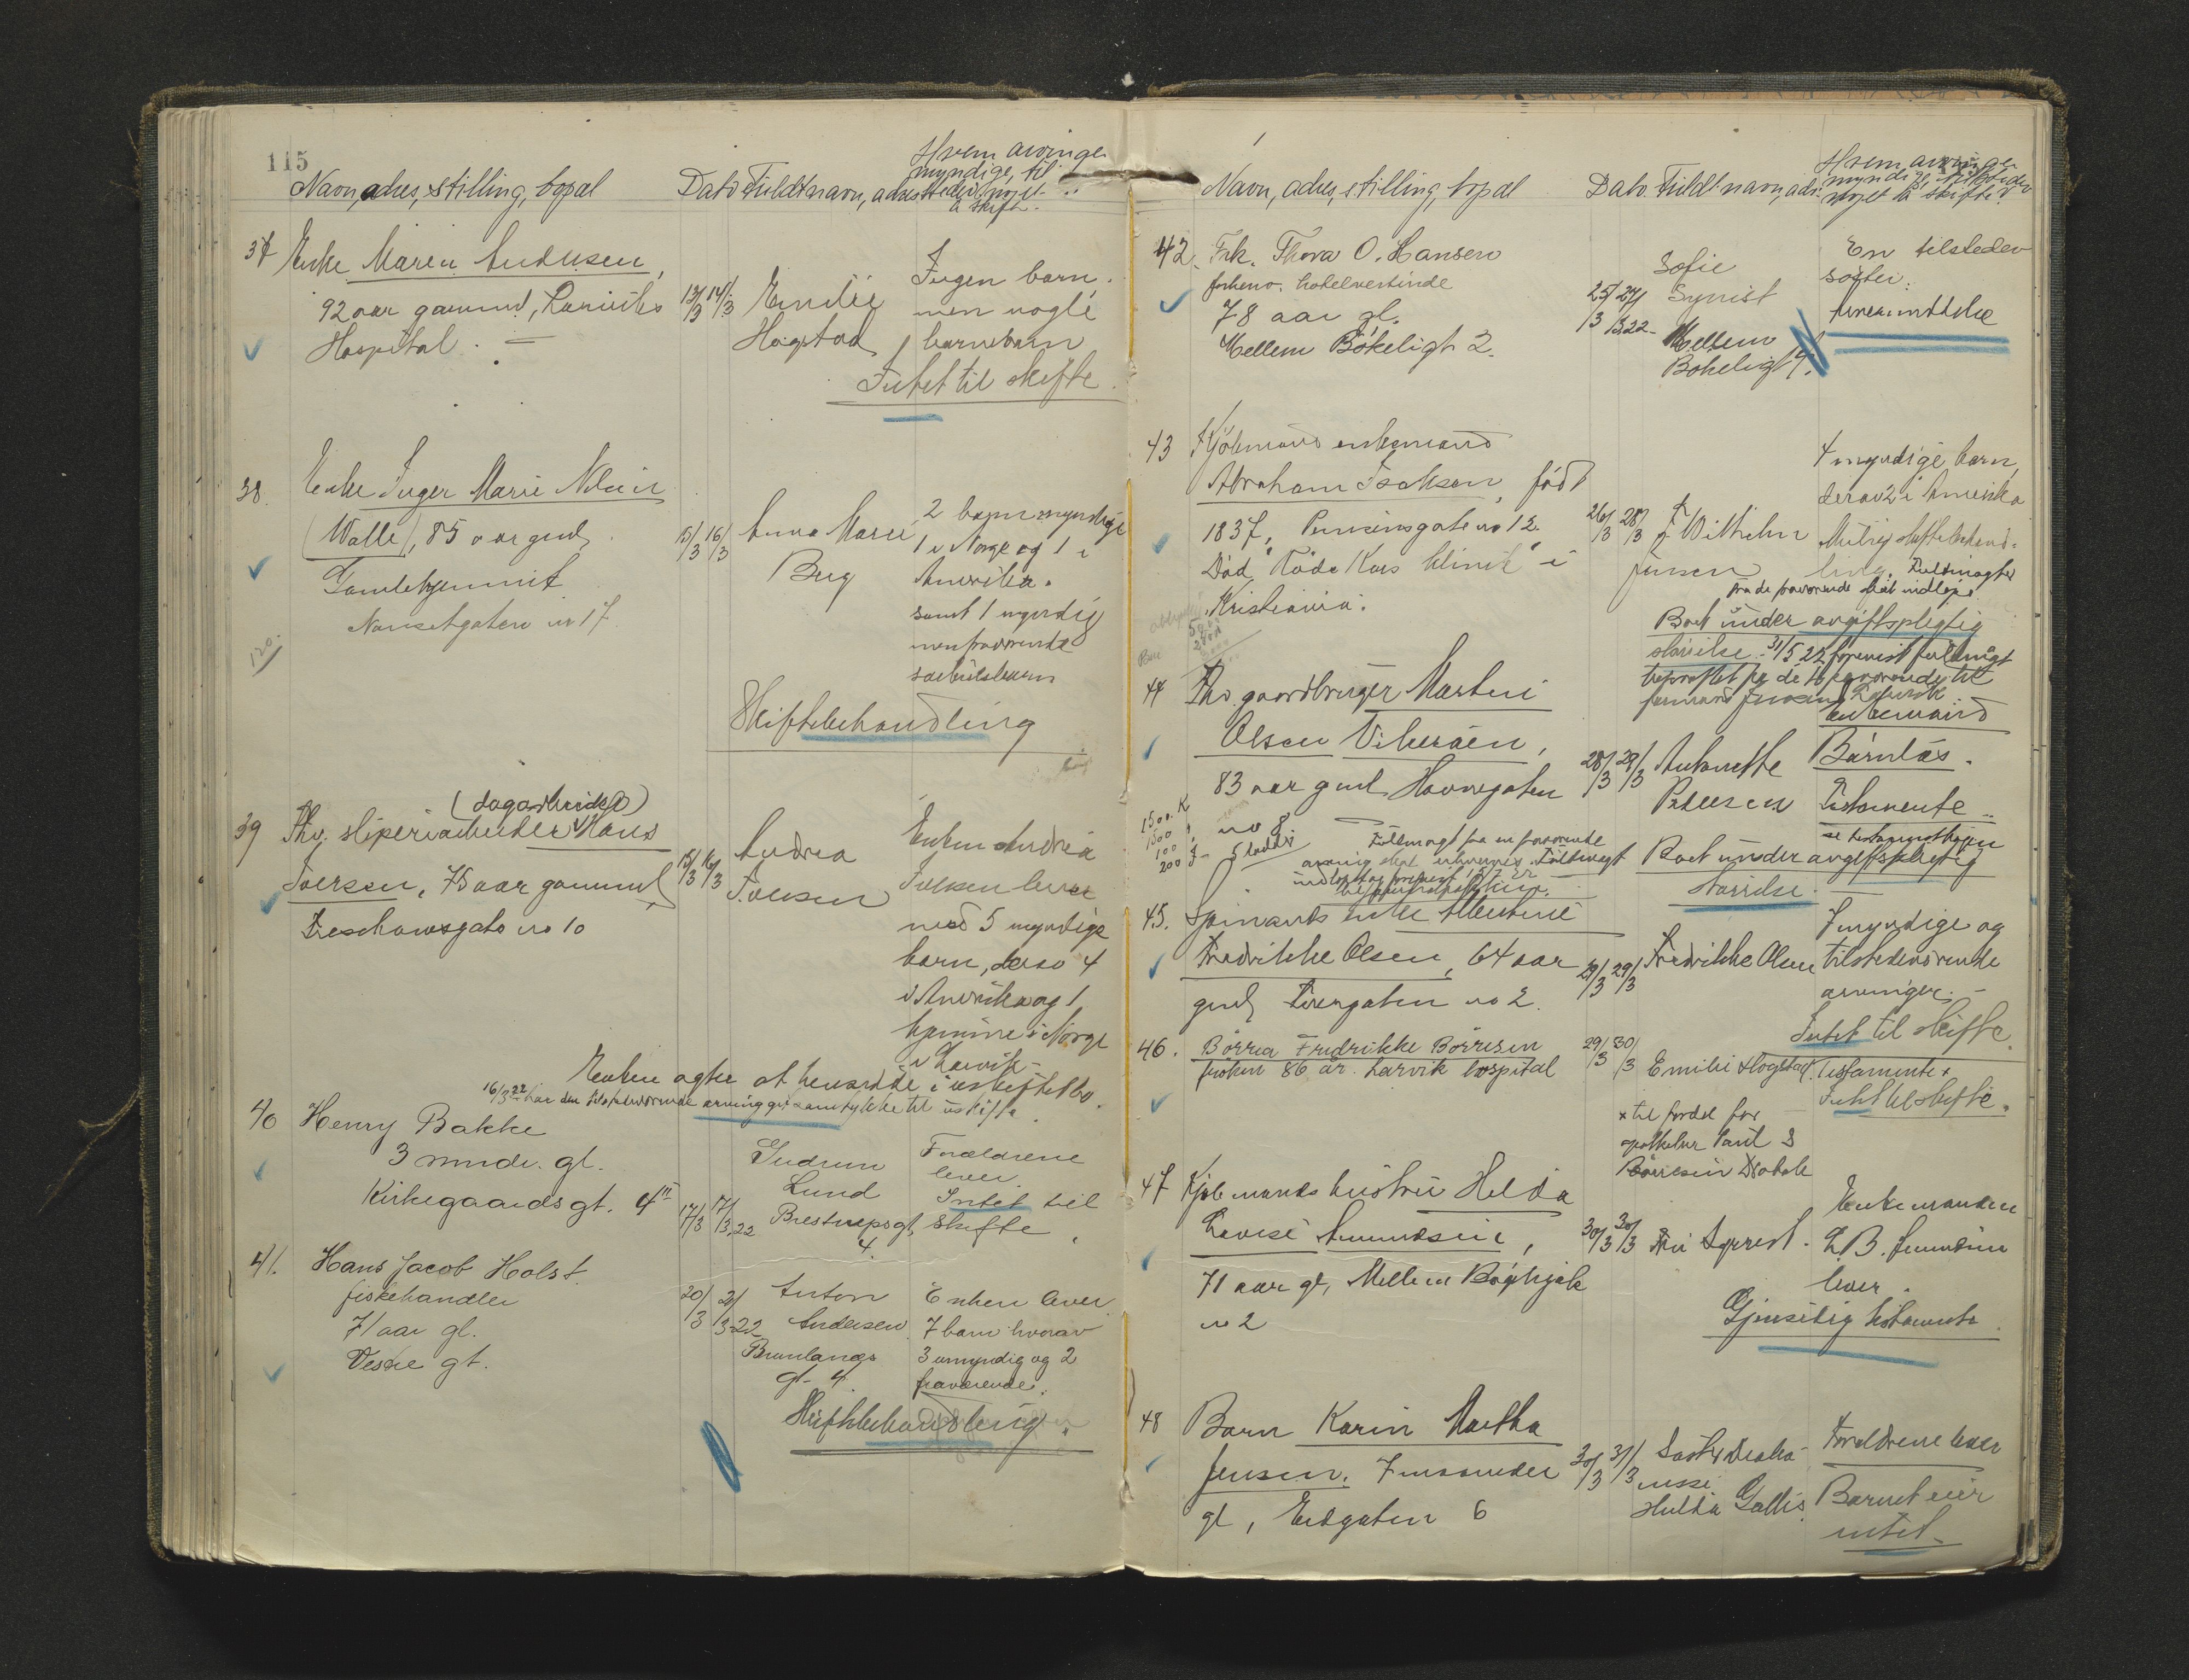 115
Navn, adres, stilling, bopæl
Dato Fuldt navn, adres
Hvem arvinge
myndige, til
stede, noget
å skifte.
37 Enke Maren Andersen,
92 aar gammel, Larviks
Hospital.
13/3 14/3 Emilie
Høgstad
Ingen barn,
men nogle
barnebarn
Intet til skifte.
38. Enke Inger Marie Nilsen
(Walle), 85 aar gml,
Gamlehjemmet
Nansetgaten no 17.
120.
15/3 16/3 Anna Marie
Berg
2 barn myndige
1 i Norge og 1 i
Amerika.
samt 1 myndig
men fraværende
særkulsbarn
Skiftebehandling
39 Fhv. sliperiarbeider Hans
(dagarbeider)
Iversen, 75 aar gammel
Treschowsgate no 10
15/3 16/3 Andrea
Iversen
Enken Andrea
Iversen lever
med 5 myndige
barn, derav 4
i Amerika og 1
hjemme i Norge
i Larvik -
Enken agter at hensidde i uskiftet bo.
16/3 22 har den tilstedeværende arving git samtykke til uskifte.
40 Henry Bakke
3 mndr. gl.
Kirkegaards gt. 4
17/3 17/3 22
Gudrun
Lund
Prestneps gt,
4.
Forældrene
lever.
Intet til
skifte.
41. Hans Jacob Holst.
fiskehandler
71 aar gl.
Vestre gt.
20/3 21/3-22
Anton
Andersen
Brunlanæs
gt- 4
Enken lever
7 barn hvorav
3 umyndig og 2
fraværende.
Skiftebehandling.
Navn, adres, stilling, bopæl
Dato. Fuldt navn, adr.
Hvem arvinge
myndige, tilstede
noget å skifte?
42. Frk. Thora O. Hansen
forhenv. hotelvertinde
78 aar gl.
Mellem Bökeligt 2.
25/3 27/3 22-
Sofie
Syrrist
Mellem
Bökeligt 4.
En tilstedev
søster.
43 Kjöbmand enkemand
Abraham Isaksen, født
1837, no 12.
Död "Röde Kors klinik" i
Kristiania.
26/3 28/3 J. Wilhelm
Jensen
4 myndige barn,
derav 2 i Amerika
Mulig skiftebehand-
ling. Fuldmagter
fra de fraværende skal indløpe.
Boet under avgiftspligtig
størrelse. 31/5 22 forevist fuldmagt
44 Fhv. gaardbruger Martin
Olsen Vikeröen,
83 aar gml Havnegaten
no 8
1500. K
1500
100
200
28/3 29/3 Antonette
Pedersen
Enkemand
Barnløs.
Testamente
se testamentkopien
Boet under avgiftspligtig
størrelse.
Fuldmagt fra en fraværende
45. Spinards enke Albertine
Fredrikke Olsen, 64 aar
gml Torvgaten no 2.
29/3 29/3 Fredrikke Olsen
7 myndige og
tilstedeværende
arvinger.
Intet til skifte.
46. Börrea Fredrikke Börresen
frøken 86 år. Larvik hospital
29/3 30/3 Emilie Høgstad.
Testamente x
Intet til skifte.
x til fordel for
apotheker Paul S
Börresen Drøbak
47 Kjöbmands hustru Helda
Lovise Amundsen,
71 aar gl, Mellem Bøghjak
no 2
30/3 30/3 Fru Syrrist.
Enkemanden
L. B. Amundsen
lever.
Gjensidig testamente
48 Barn Karin Martha
Jensen. 7 maaneder
gl, Eidgaten 6
30/3 31/3 Søster Diako-
nisse
Hulda Gallis.
Forældrene lever
Barnet eier
intet-